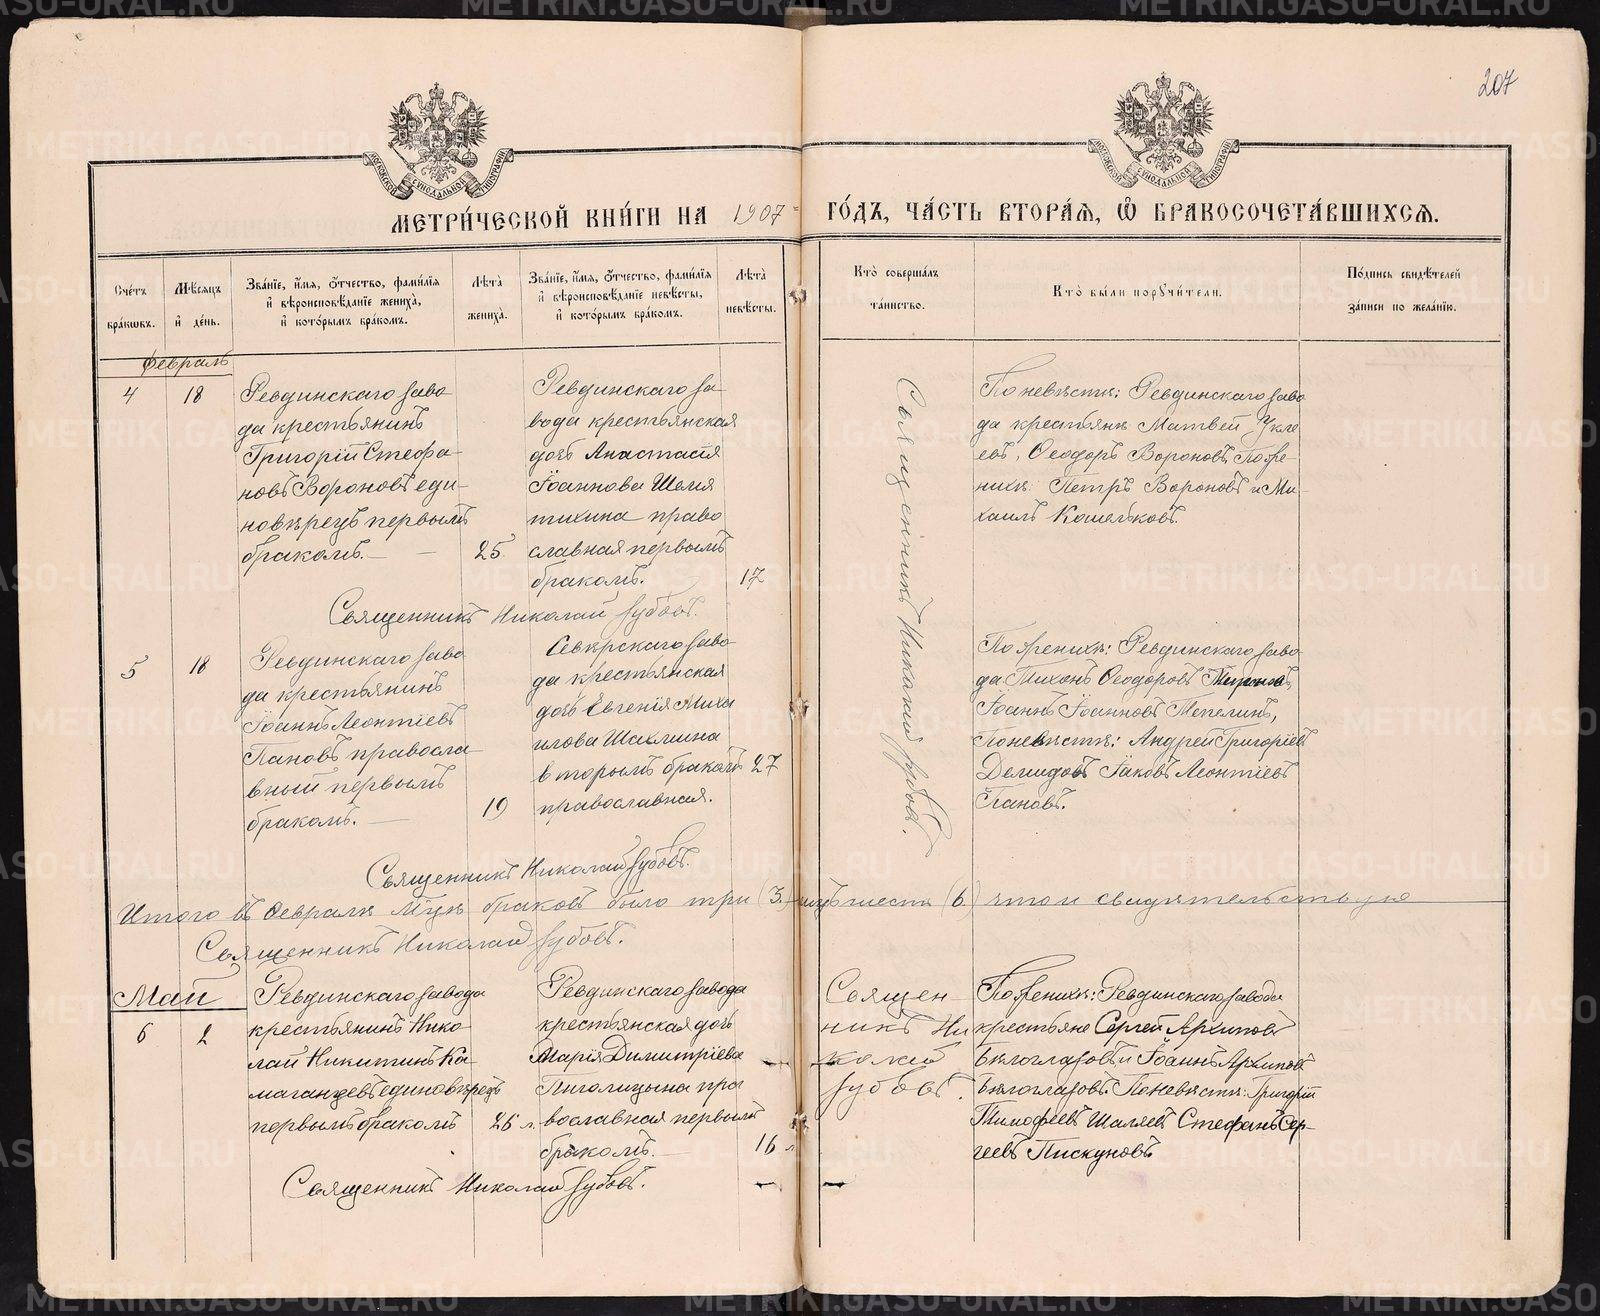 207
МОСКОВСКОЙ СѴНОДАЛЬНОЙ ТИПОГРАФІИ
МОСКОВСКОЙ СѴНОДАЛЬНОЙ ТИПОГРАФІИ
МЕТРИ́ЧЕСКОЙ КНИ́ГИ НА 1907 ГО́ДЪ, ЧА́СТЬ ВТОРА́Ѧ, Ѽ БРАКОСОЧЕТА́ВШИХСѦ.
Сче́тъ бра́кωвъ.
Мѣ́сѧцъ и҆ де́нь.
Зва́нїе, и҆́мѧ, ѻ҆́тчество, фами́лїѧ
и҆ вѣроисповѣ́данїе жениха̀,
и҆ кото́рымъ бра́комъ.
Лѣ́та̀ жениха̀.
Зва́нїе, и҆́мѧ, ѻ҆́тчество, фами́лїѧ
и҆ вѣроисповѣ́данїе невѣ́сты,
и҆ кото́рымъ бра́комъ.
Лѣ́та̀ невѣ́сты.
Кто̀ соверша́лъ
та́инство.
Кто̀ бы́ли порꙋчи́тели.
По́дпись свидѣ́телей
за́писи по жела́нїю.
Февраль
4
18
Ревдинскаго заво
да крестьянинъ
Григорій Стефа-
новъ Вороновъ еди-
новѣрецъ первымъ
бракомъ.
25
Ревдинскаго за-
вода крестьянская
дочь Анастасія
Іоаннова Шемя
тихина право
славная первымъ
бракомъ.
17
Священникъ Николай Зубовъ.
По невѣстѣ: Ревдинскаго заво
да крестьяне Матвей Укле
евъ, Ѳеодоръ Вороновъ, По же-
нихѣ: Петръ Вороновъ и Ми-
хаилъ Кошельковъ.
Священникъ Николай Зубовъ.
5
18
Ревдинскаго заво
да крестьянинъ
Іоаннъ Леонтіевъ
Пановъ правосла
вный первымъ
бракомъ.
19
Сѣверскаго заво-
да крестьянская
дочь Евгенія Миха
илова Шахмина
вторымъ бракомъ 27
православная.
Священникъ Николай Зубовъ.
По женихѣ: Ревдинскаго заво
да Тихонъ Ѳеодоровъ
Іоаннъ Іоанновъ Тепелинъ,
По невѣстѣ: Андрей Григоріевъ
Демидовъ Іаковъ Леонтіевъ
Пановъ.
Итого въ Февралѣ М-цѣ браковъ было три (3) лицъ шесть (6) что и свидѣтельствую
Священникъ Николай Зубовъ.
Май
6
2
Ревдинскаго завода
крестьянинъ Нико
лай Никитинъ Ка-
маганцевъ единовѣрецъ
первымъ бракомъ
26 л.
Ревдинскаго завода
крестьянская дочь
Марія Димитріева
Пиголицына пра
вославная первымъ
бракомъ.
16 л
Священникъ Николай Зубовъ.
Священ-
никъ Ни
колай
Зубовъ.
По женихѣ: Ревдинскаго завода
крестьяне Сергей Архиповъ
Бѣлоглазовъ и Іоаннъ Архиповъ
Бѣлоглазовъ. По невѣстѣ: Григорій
Тимофеевъ Шаляевъ Стефанъ Сер-
геевъ Пискуновъ.
METRIKI.GASO-URAL.RU